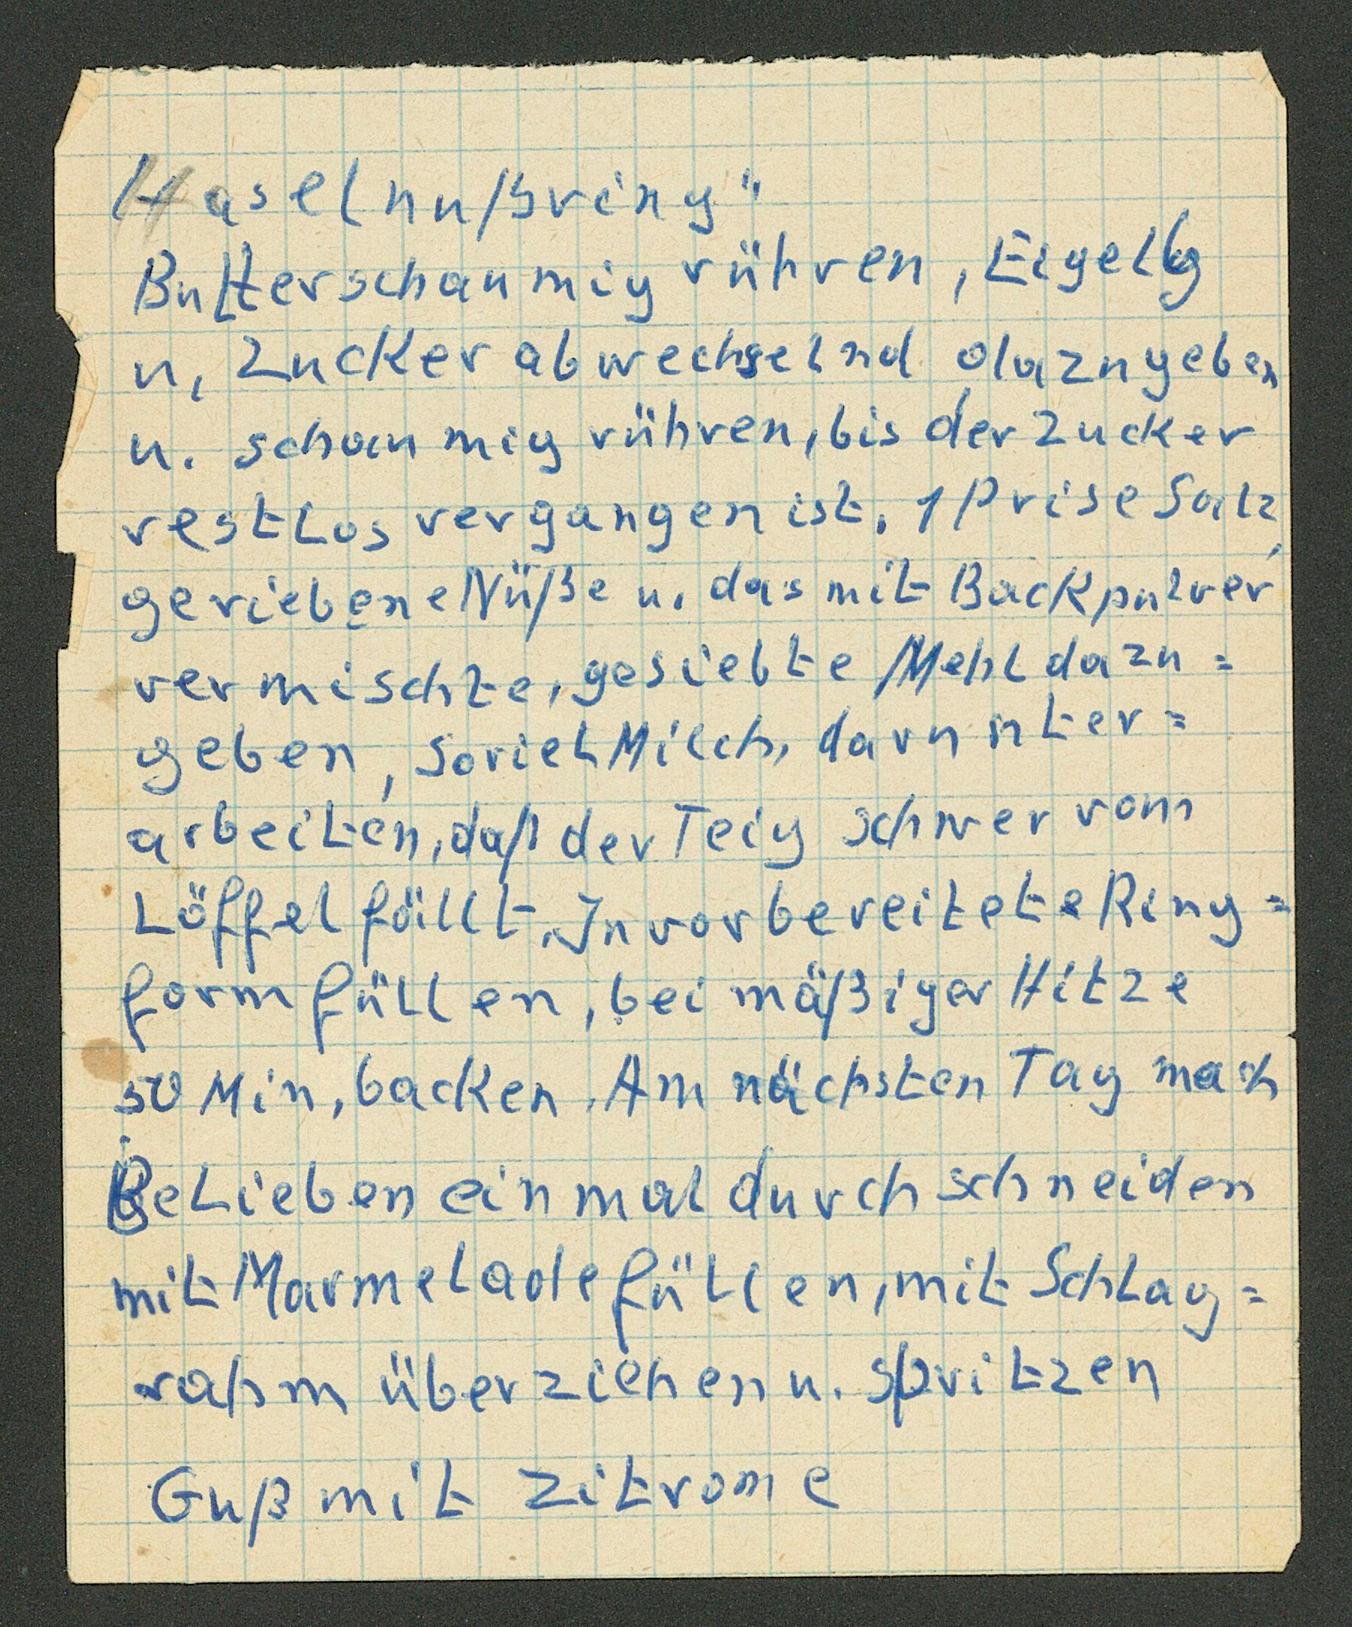 Haselnußring"
Butterschaumig rühren, Eigelb
u. Zucker abwechselnd dazugeben
u. schaumig rühren, bis der Zucker
restlos vergangen ist, 1 Prise Salz,
geriebene Nüße u. das mit Backpulver
vermischte, gesiebte Mehl dazu=
geben, soviel Milch, darunter=
arbeiten, daß der Teig schwer vom
Löffel fällt. In vorbereitete Ring=
form füllen, bei mäßiger Hitze
50 Min, backen. Am nächsten Tag nach
Belieben einmal durchschneiden
mit Marmelade füllen, mit Schlag=
rahm überziehen u. spritzen
Guß mit Zitrone